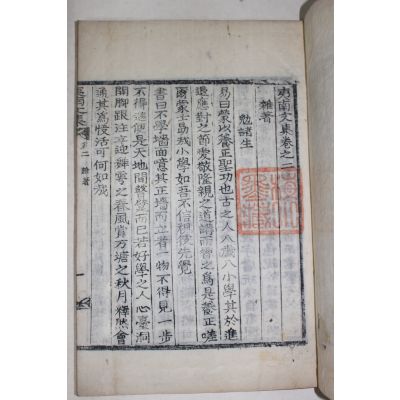 南文集卷之一
雜著
勉諸生
易曰蒙以養正聖功也古之人八歲入小學其於進
退應對之節愛敬隆親之道講而習之爲是養正嗟
爾蒙士曷我小學如吾不信視後先覺
書曰不學墻面言意其正墻而立着一物不得見一步
不得適便是天地間聾瞽而已若好學之人心臺洞
開脚跟注立迎舞雩之春風賞方塘之秋月釋然會
通其爲慢活可何如哉
南文集
雜著